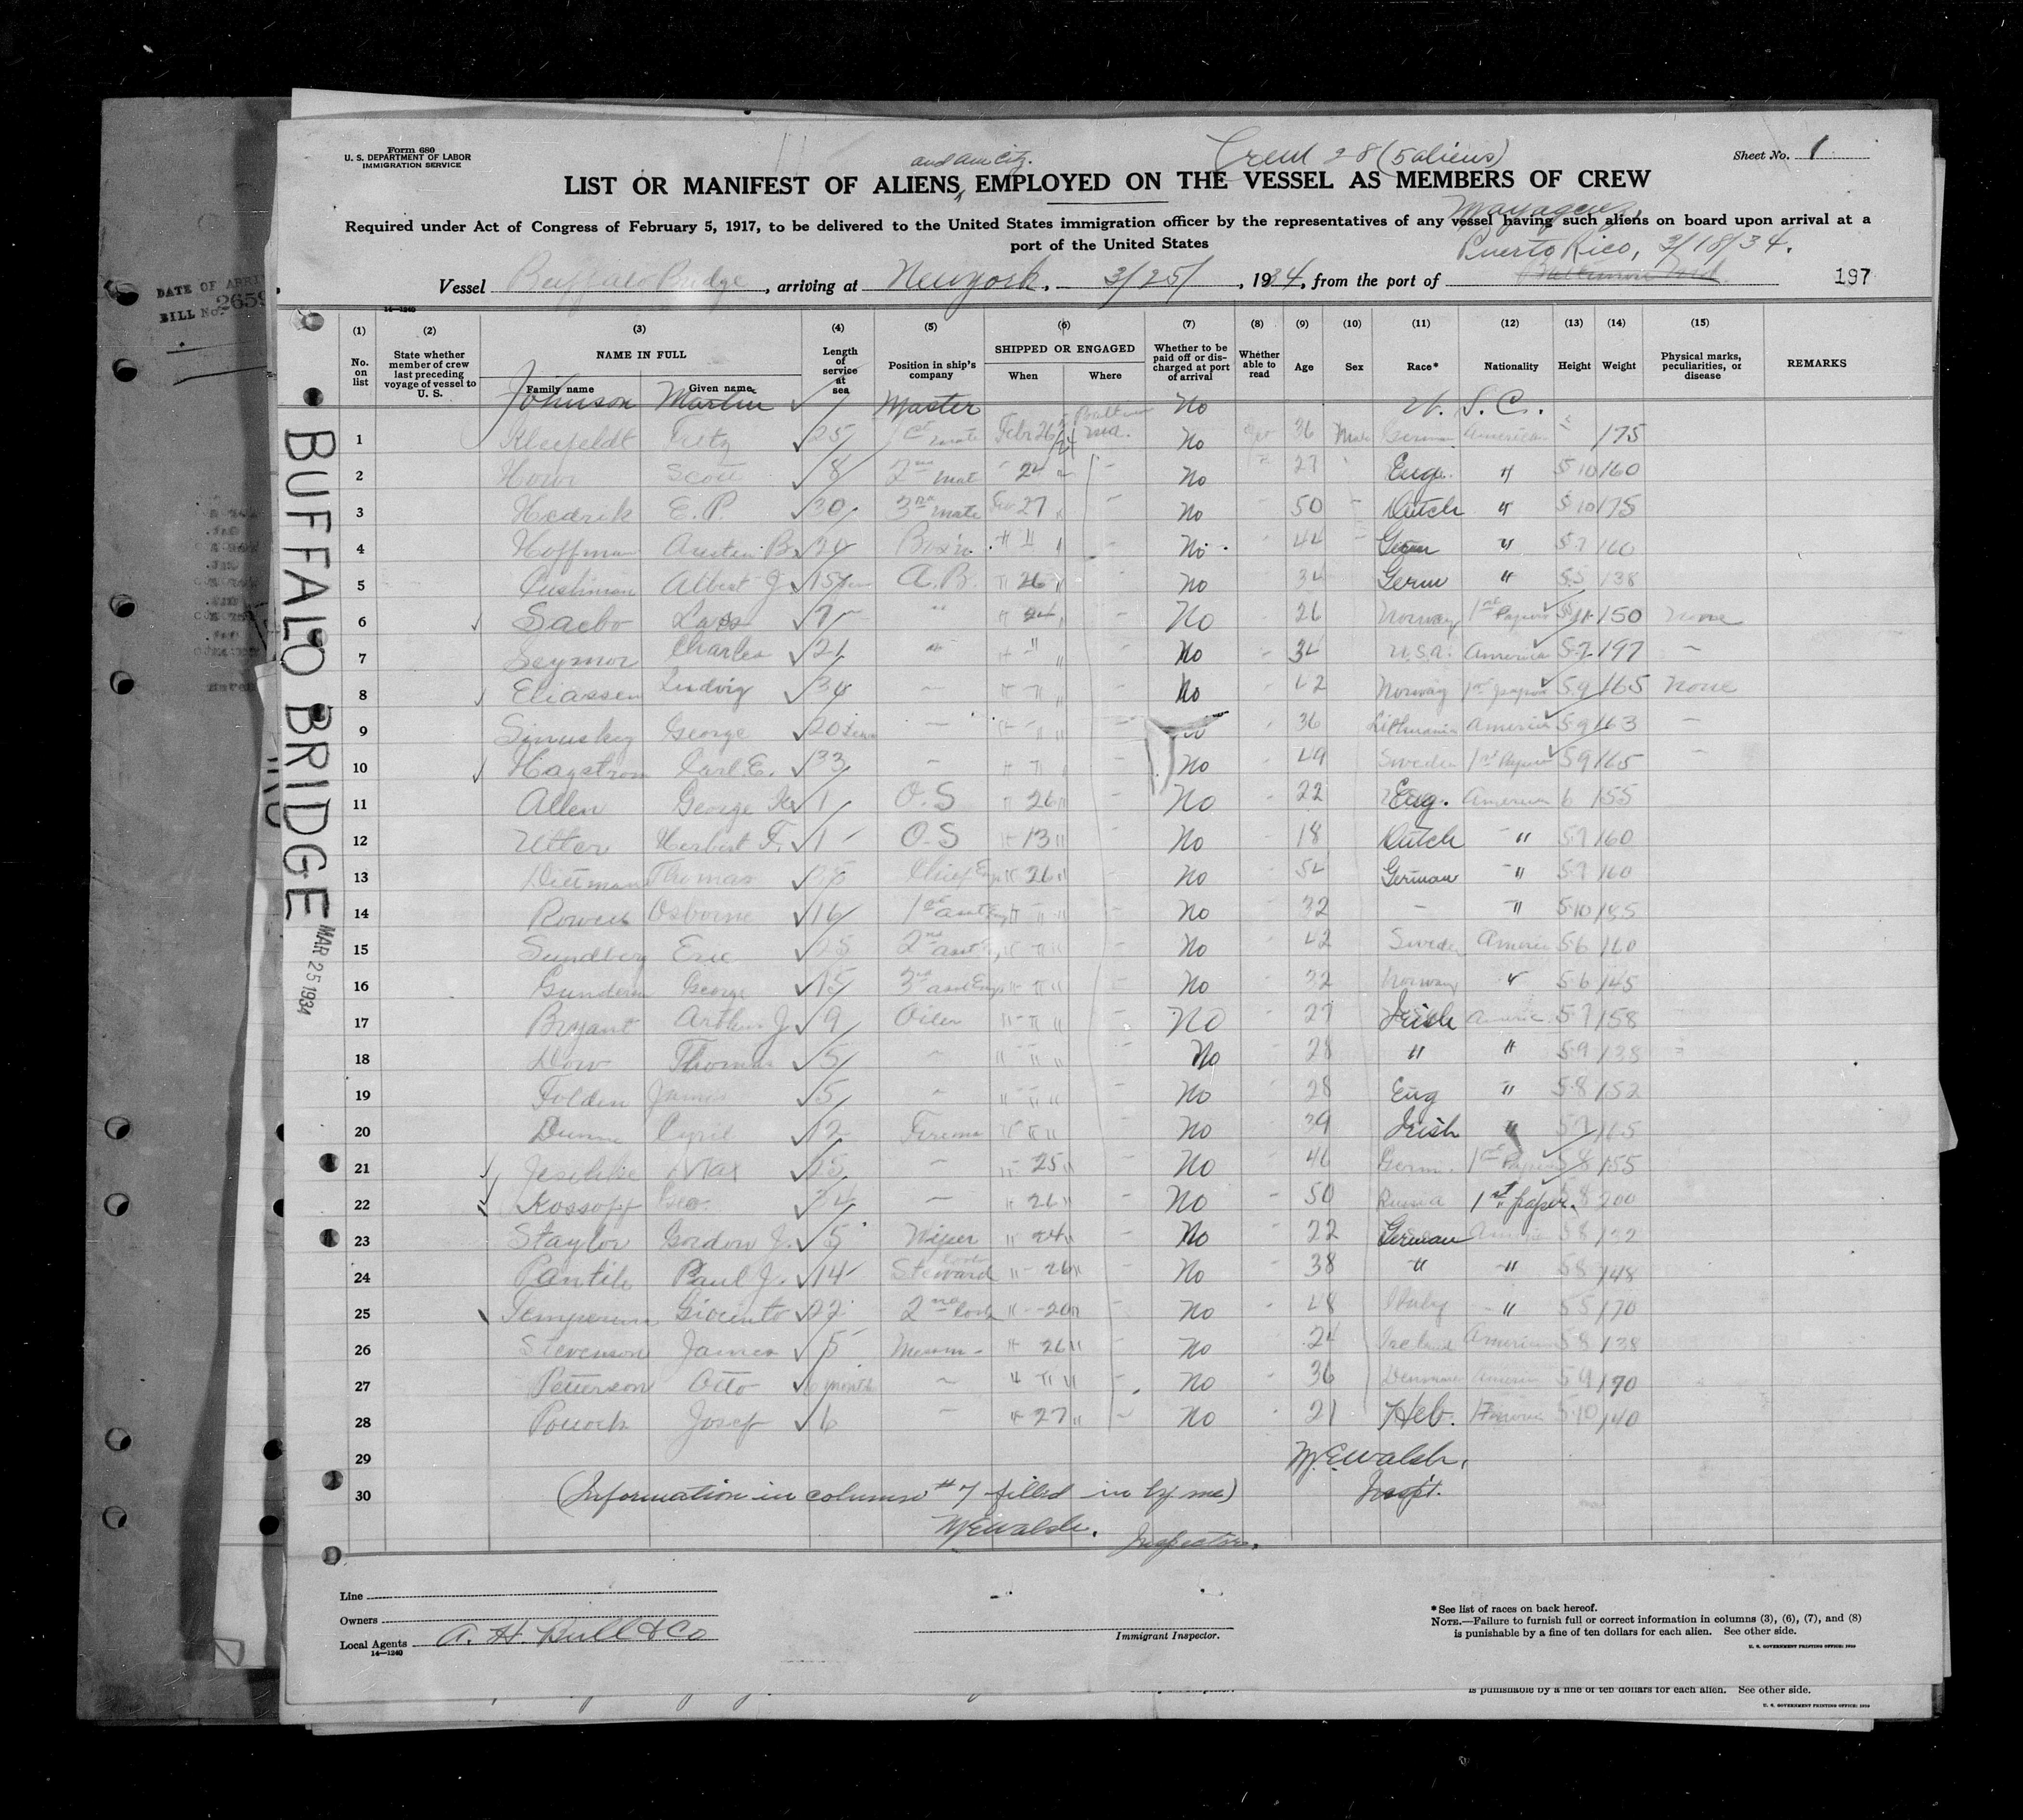 Form 680
U. S. DEPARTMENT OF LABOR
IMMIGRATION SERVICE
and Am Citz.
Crew 28 (5 aliens)
Sheet No. 1
LIST OR MANIFEST OF ALIENS EMPLOYED ON THE VESSEL AS MEMBERS OF CREW
Required under Act of Congress of February 5, 1917, to be delivered to the United States immigration officer by the representatives of any vessel having such aliens on board upon arrival at a
port of the United States
Mayaguez,
Puerto Rico, 3/18/34.
Vessel Buffalo Bridge, arriving at New York, 3/25/, 1934, from the port of
197
DATE OF ARRI
BILL No. 2659
BUFFALO BRIDGE MAR 25 1934
14—1240
(1) (2) (3) (4) (5) (6) (7) (8) (9) (10) (11) (12) (13) (14) (15)
No. on list
State whether member of crew last preceding voyage of vessel to U. S.
NAME IN FULL
Family name Given name
Length of service at sea
Position in ship's company
SHIPPED OR ENGAGED
When Where
Whether to be paid off or discharged at port of arrival
Whether able to read
Age Sex Race* Nationality Height Weight
Physical marks, peculiarities, or disease
REMARKS
Johnson Martin Master No U. S. C.
1 Fritz 25 1st mate Feb 26 Md. No 36 Male German American 175
2 Scott 8 2nd mate No 27 Eng. " 5 10 160
3 Hedrik E. P 30 3rd mate 27 No 50 Dutch " 5 10 175
4 Hoffman Austin B. 20 Bos'n " " No 44 Germ " 5-7 160
5 Cushman Albert J 15 A. B. " 26 " No 34 Germ " 5.5 138
6 Saebo Lars 7 " " 24 No 26 Norway 1st Papers 150 none
7 Seymor Charles 21 " " " No 34 U.S.A. America 5-7 197 -
8 Eliassen Ludvig 34 - " " No 42 Norway 1st papers 5.9 165 none
9 George 20 - " " 36 Lithuania America 5-9 163 -
10 Hagstrom Carl E. 33 - " " No 49 Sweden 1st Papers 5 9 165 -
11 Allen George 1 O. S " 26 " No 22 Eng. American 6 155
12 Utter Herbert F. 1 O. S " 13 " No 18 Dutch " 5-7 160
13 Thomas Chief Eng " 26 " No 52 German " 5-7 160
14 Osborne 16 1st asst Eng " " No 32 - " 5-10
15 Sundberg Eric 25 2nd asst " " No 42 Sweden America 5 6 160
16 George 15 3rd asst Eng " " No 32 Norway " 5-6 145
17 Bryant Arthur J. 9 Oiler " " No 27 Irish Americ 5-7 158
18 Dow Thomas 5 " " " No 28 " " 5-9 138
19 Folden James 5 " " " No 28 Eng " 5-8 152
20 Dunn Cyril 12 Firema " " No 39 Irish " 5-7 165
21 Max - " 25 " No Germ. 1st Papers 5 8 155
22 Kossoff Geo. 34 - " 26 " No 50 Russia 1st paper. 5-8 200
23 Staylor Gordon J. 5 Wiper " 24 " No 22 German 5 8
24 Paul J. 14 Steward Cook " 26 " No 38 " " 5 8 148
25 Giocinto 22 2nd Cook " 20 " No 48 Italy " 5 5 170
26 Stevenson James 5 Messm - " 26 " No 24 Ireland American 5 8 138
27 Petterson Otto month " " " No 36 Denmark America 5 9 170
28 Josef 6 - " 27 " No 21 Heb. 5-10 140
29 M. E. Walsh,
30 (Information in column #7 filled in by me) Inspt.
M. E. Walsh. Inspector.
Line
Owners
Local Agents A. H. Bull & Co
14—1240
Immigrant Inspector.
*See list of races on back hereof.
NOTE.—Failure to furnish full or correct information in columns (3), (6), (7), and (8)
is punishable by a fine of ten dollars for each alien. See other side.
U. S. GOVERNMENT PRINTING OFFICE: 1929
is punishable by a fine of ten dollars for each alien. See other side.
U. S. GOVERNMENT PRINTING OFFICE: 1929